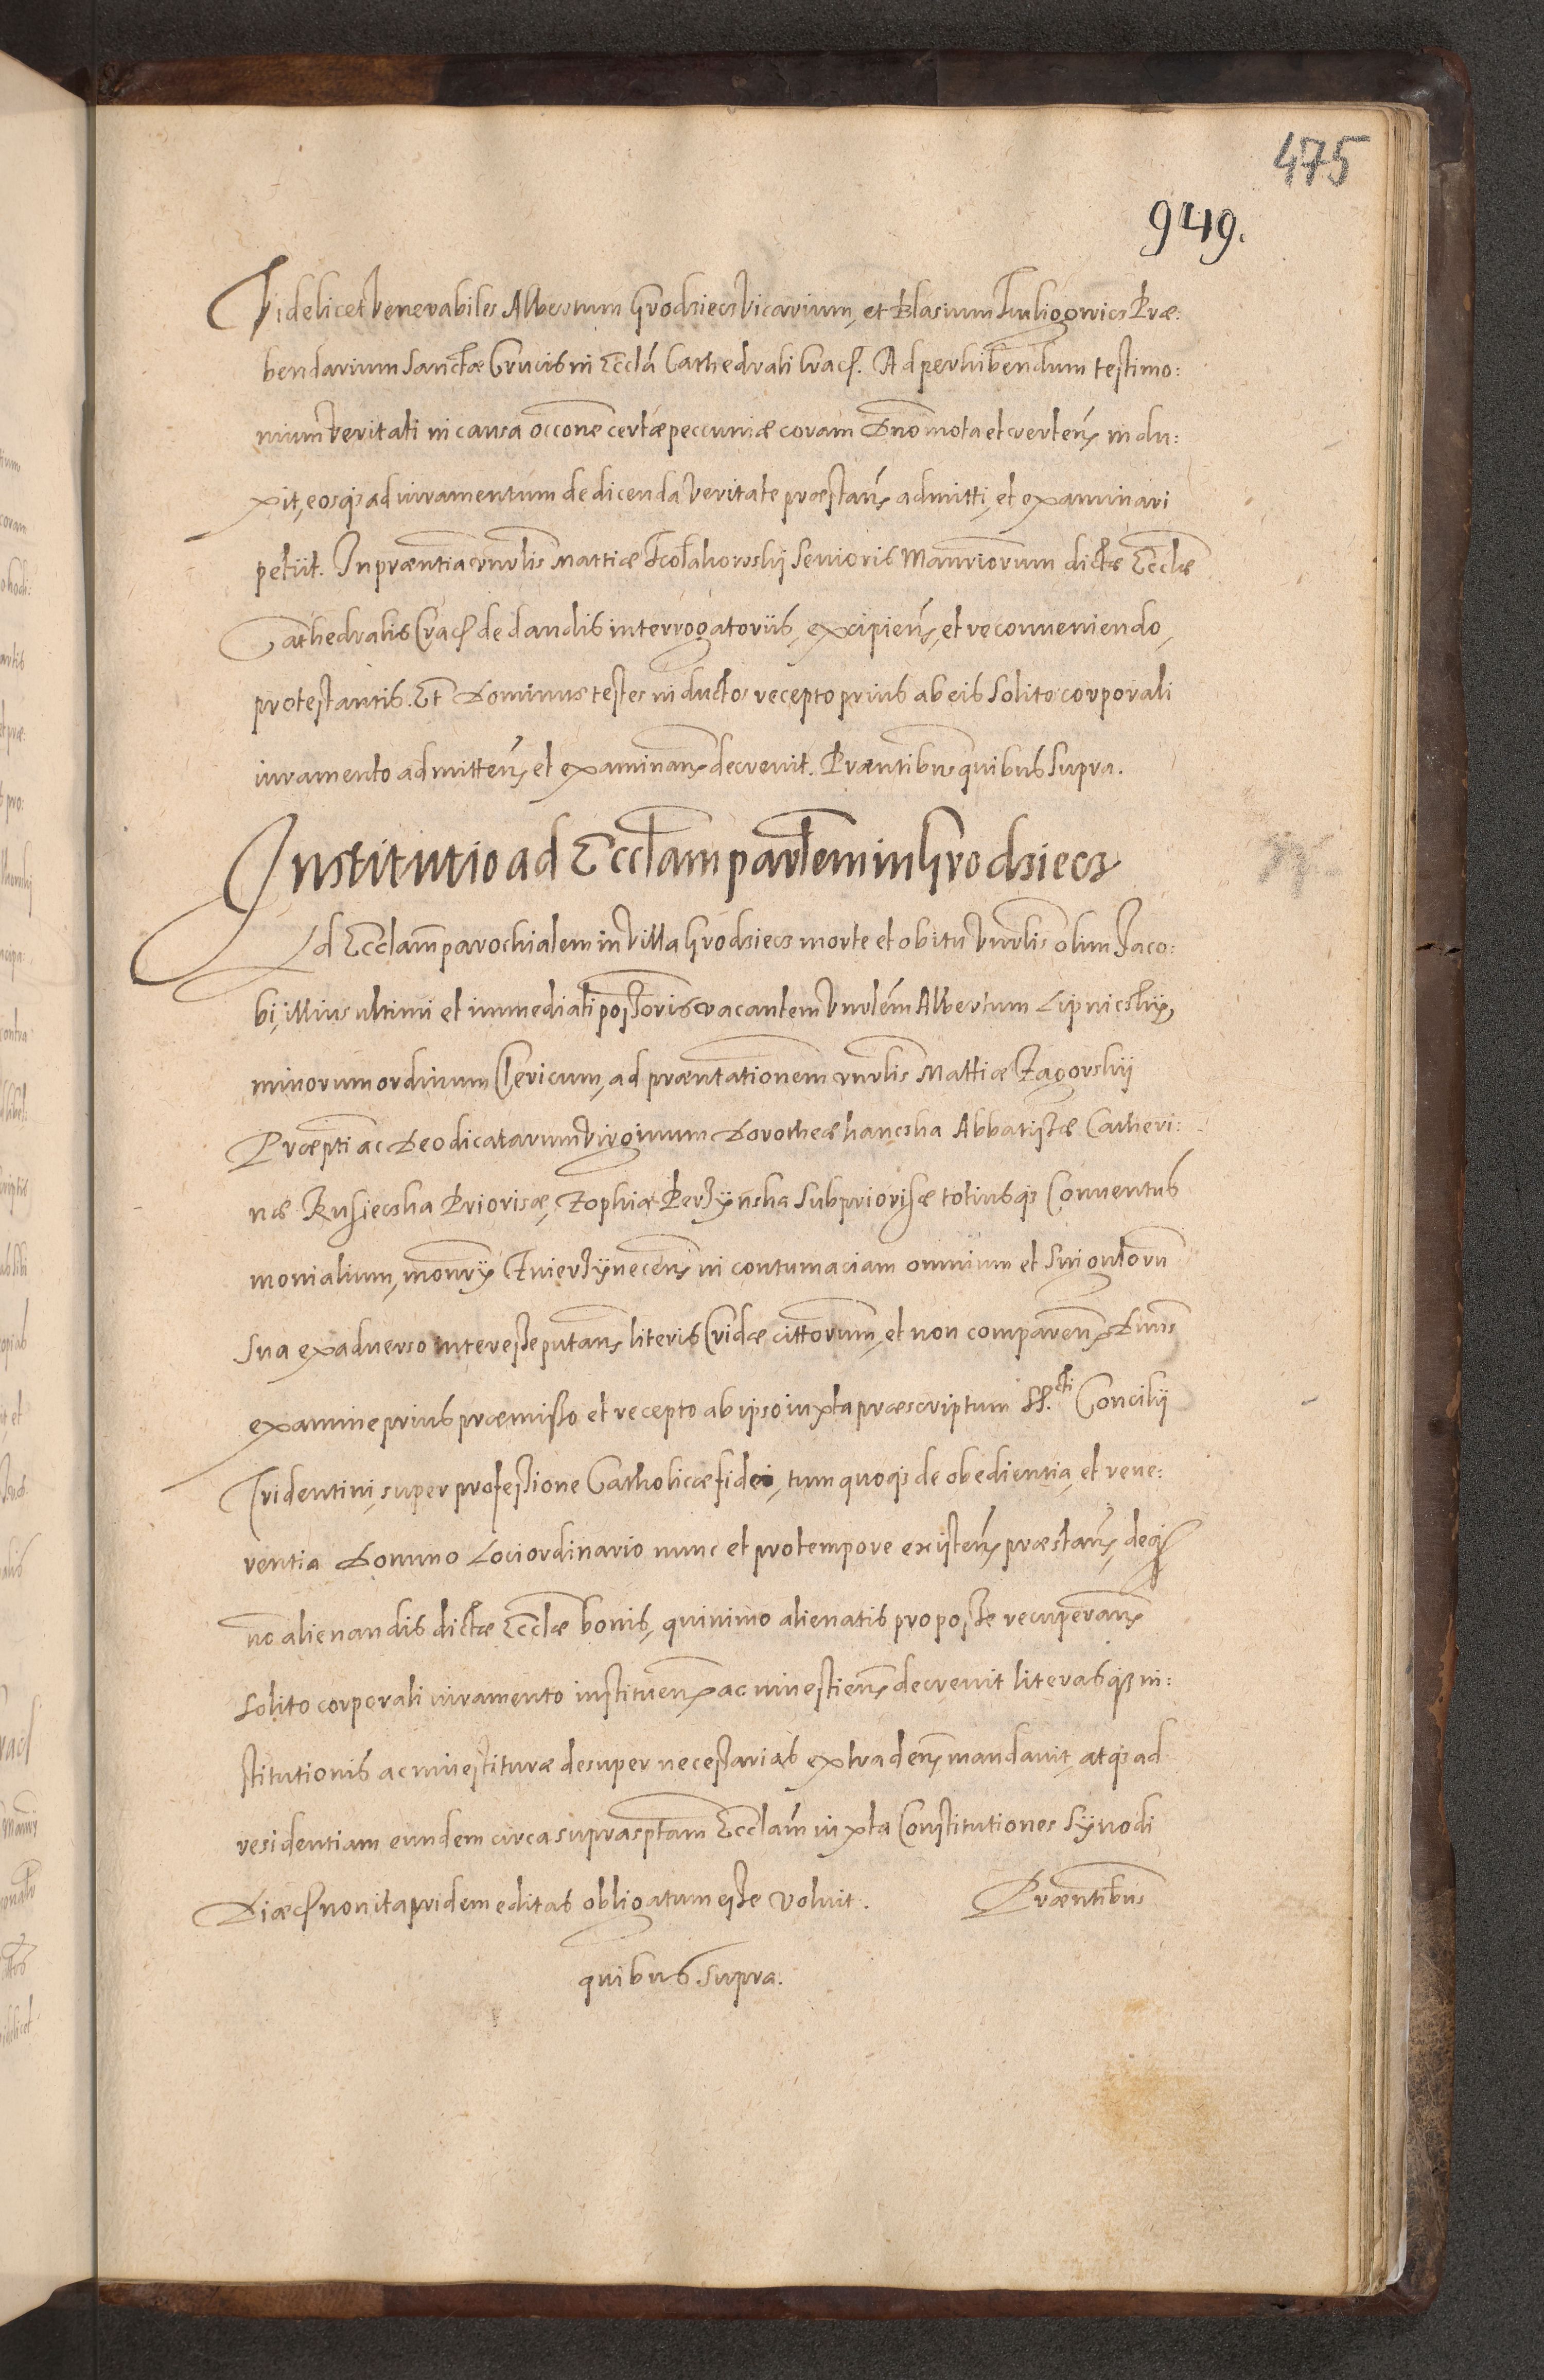 475
949.
Videlicet Venerabiles Albertum Grodziecz Vicarium, et Blasium Fuligowicz Præ:
bendarium Sanctæ Crucis in Eccła Cathedrali Crac̃. Ad perhibendum testimo:
nium Veritati in causa occone certæ peccuniæ coram Dno mota et verteñ indu:
xit, eosq3 ad iuramentum de dicenda Veritate præstañ admitti, et examinari
petiit. In præntia vnrlis Mattiæ Scolakowskÿ Senioris Mansriorum dictæ Ecclæ
Cathedralis Crac̃ de dandis interrogatoriis, excipieñ, et reconueniendo,
protestantis. Et Dominus testes inductos recepto prius ab eis solito corporali
iuramento admitteñ et examinañ decreuit. Præntibus quibus supra.
Institutio ad Eccłam parłem in Grodziecz
Ad Eccłam parochialem in Villa Grodziecz morte et obitu Vnrlis olim Jaco:
bi, illius ultimi et immediati possoris vacantem Vnrlem Albertum Lipnickÿ,
minorum ordinum Clericum, ad præntationem vnrlis Mattiæ Zagorskÿ
Præpti ac Deo dicatarum Virginum Dorotheæ Kancska Abbatissæ Catheri:
næ Rusiecska Priorisæ, Zophiæ Perzÿnska Subpriorissæ totiusq3 Conuentus
monialium, monrÿ Zuierzÿnecens in contumaciam omnium et singulorum
sua ex aduerso interesse putañ literis Cridæ cittorum, et non compareñ Dnus
examine prius præmisso et recepto ab ipso iuxta præscriptum SS.cti Concilÿ
Tridentini, super professione Catholicæ fidei, tum quoq3 de obedientia, et reue:
rentia Domino Loci ordinario nunc et pro tempore existeñ præstañ, deq3
no alienandis dictæ Ecclæ bonis, quinimo alienatis pro posse recuperañ
solito corporali iuramento instituеñ ac inuestieñ decreuit literasq3 in:
stitutionis ac inuestituræ desuper necessarias extradeñ mandauit, atq3 ad
residentiam eundem circa suprasptam Eccłam iuxta Constitutiones Sÿnodi
Diæc̃ non ita pridem editas obligatum esse voluit. Præntibus
quibus supra.